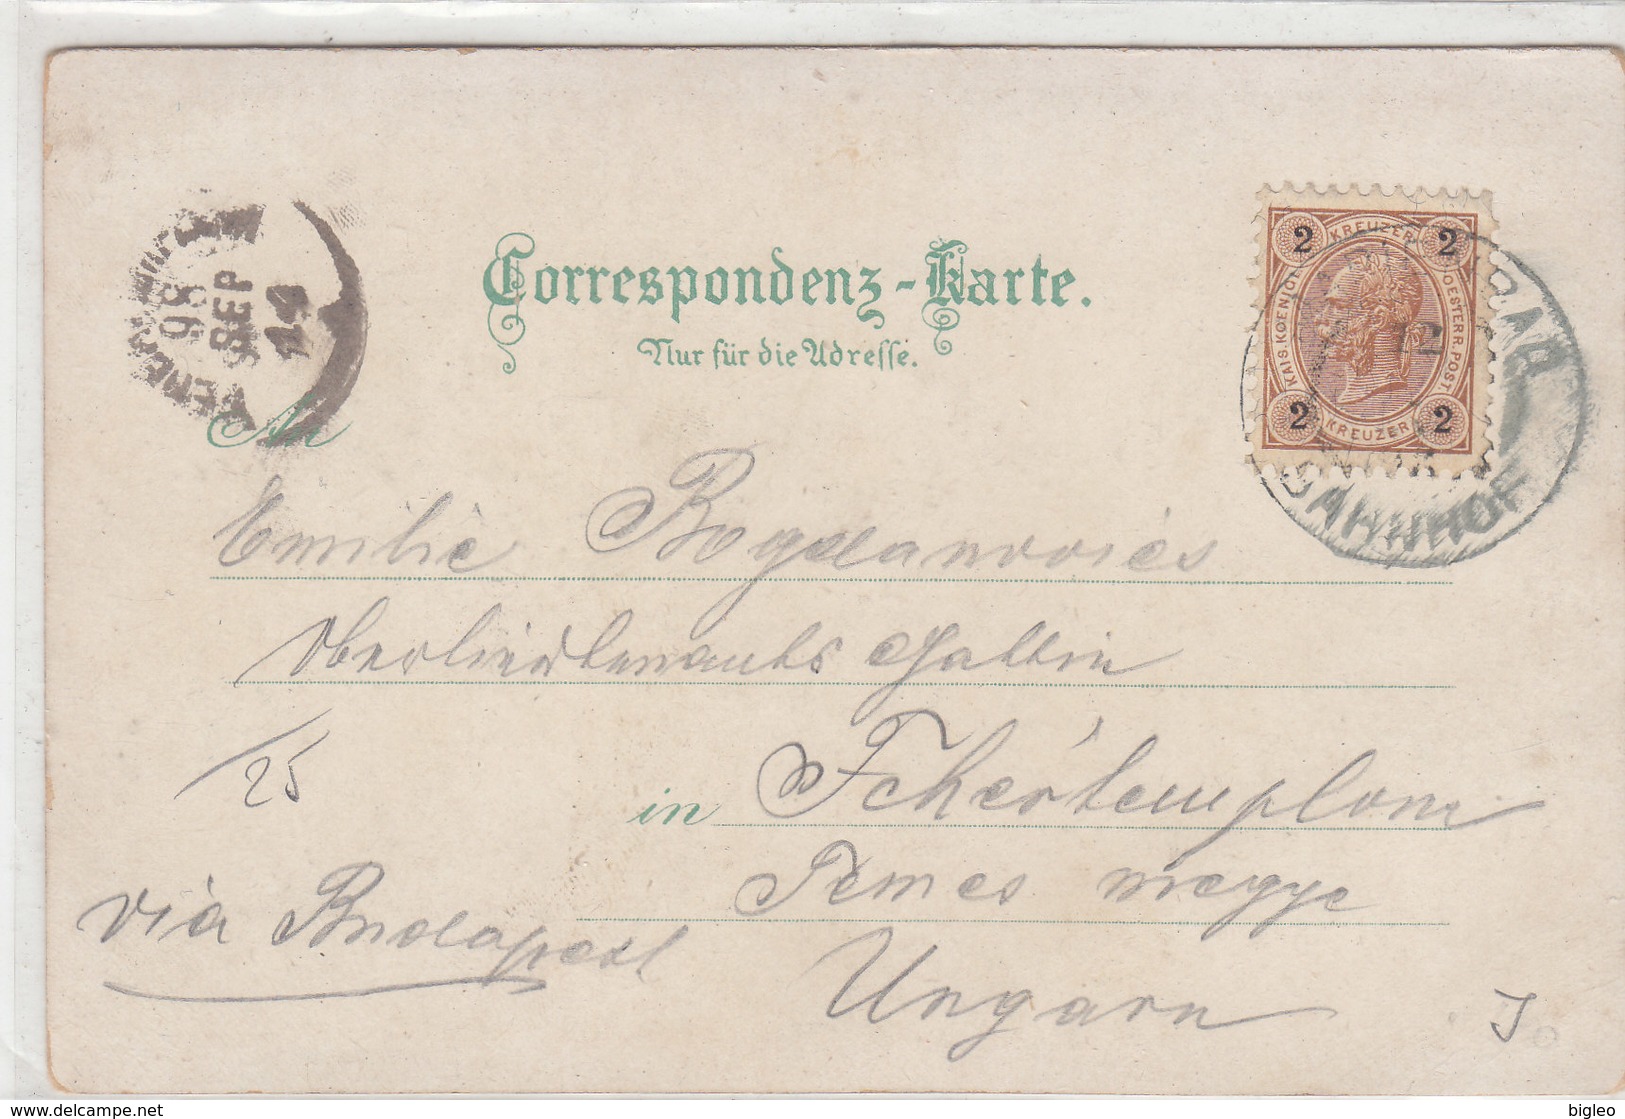 Correspondenz-Karte.
Nur für die Adresse.
2 KREUZER 2
KAIS. KOENIGL. OESTERR. POST.
2 KREUZER 2
12
BAHNHOF
98
SEP
An
Emilie Bogdanovics
Oberlieutenants Gattin
in Fehértemplom
Temes megye
Ungarn
via Budapest
25
www.delcampe.net
bigleo